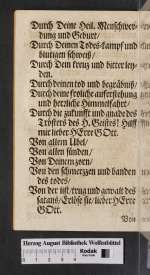 Durch Deine Heil. Menschwer-
dung und Geburt/
Durch Deinen Todes-Kampf und
blutigen schweiß/
Durch Dein kreuz und bitter ley-
den.
Durch deinen tod und begräbnüß/
Durch deine fröliche aufferstehung
und herrliche Himmelfahrt/
Durch die zukunfft und gnade des
Trösters des H. Geistes! Hilff
mir lieber HErre GOtt.
Von allem Ubel/
Von allen sünden/
Von Deinem zorn/
Von den schmertzen und banden
des todes/
Von der list/trug und gewalt des
satans/Erlöse sie/lieber HErre
GOtt.
Von
Herzog August Bibliothek Wolfenbüttel